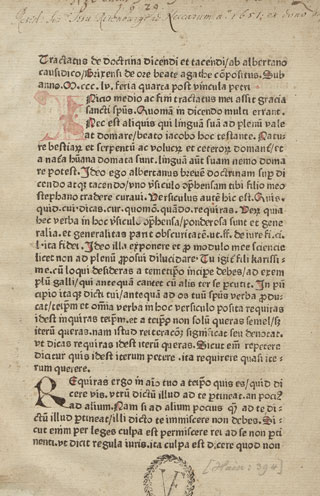 1620
Tractatus de doctrina dicendi et tacendi/ab albertano
causidico/Birensi de ore beate agathe cōpositus. Sub
anno. M.ccc.lv. feria quarta post vincula petri
INicio medio ac fini tractatus mei assit gracia
sancti spūs. Quoniā in dicendo multi errant.
Nec est aliquis qui linguā suā ad plenū vale
at domare/beato iacobo hoc testante. Nature
bestiarꝝ et serpentū ac volucrꝝ et ceterorꝝ domant/et
a naēa hūana domata sunt. linguā aūt suam nemo doma
re potest. Ideo ego albertanus breuē doctrinam sup di
cendo atqꝫ tacendo/vno ṽsiculo ɔphensam tibi filio meo
stephano tradere curaui. Versiculus autē hic est. Quis.
quid. cui. dicas. cur. quomō. quādo. requiras. Verꝝ quia
hec verba in hoc ṽsiculo ɔphensa/ponderosa sunt et gene
ralia. et generalitas parit obscuritatē. ut. ff. de iure fi. ci.
l. ita fidei. Ideo illa exponere et ꝓ modulo mee sciencie
licet non ad plenū ꝓposui dilucidare. Tu igit̄ fili karissi-
me. cū loqui desideras a temetip̄o incipe debes/ad exem
plū galli/qui antequā cantet cū alis ter se pcutit. In p̄n
cipio itaqꝫ dicti tui/antequā ad os tuū sp̄us verba ꝓdu
cat/teip̄m et om̄ia verba in hoc versiculo posita requiras
idest inquiras teip̄m. et a teip̄o non solū queras semel/sꝫ
iterū queras. nam istud re/iteracōꝫ significat seu denotat.
vt dicas requiras idest iterū queras. Sicut em̄ repetere
dicitur quis idest iterum petere. ita requirere quasi ite-
rum querere.
REquiras ergo in aīo tuo a teip̄o quis es/quid di
cere vis. vtrū dictū illud ad te ptineat. an pocꝰ
ad alium. Nam si ad alium pocus qꝫ ad te di-
ctū illud ptineat/illi dicto te immiscere non debes. Si-
cut enim per leges culpa est permiscere rei ad se non pti
nenti. vt dicit regula iuris. ita culpa est dicere quod non
Hain: 394]
V